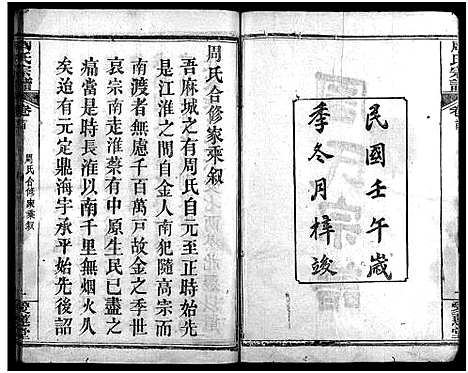 周氏宗譜
卷首
民國壬午歲
季冬月梓竣
周氏合修家乘叙
吾麻城之有周氏自元至正時始先
是江淮之間自金人未犯隨高宗而
南渡者無慮千百萬戶故金之季世
哀宗南走淮蔡有中原生民已盡之
痛當是時長淮以南千里無烟火矣
矣迨有元定鼎海宇承平始先後詔
周氏宗譜
卷首
周氏合修家乘叙
一